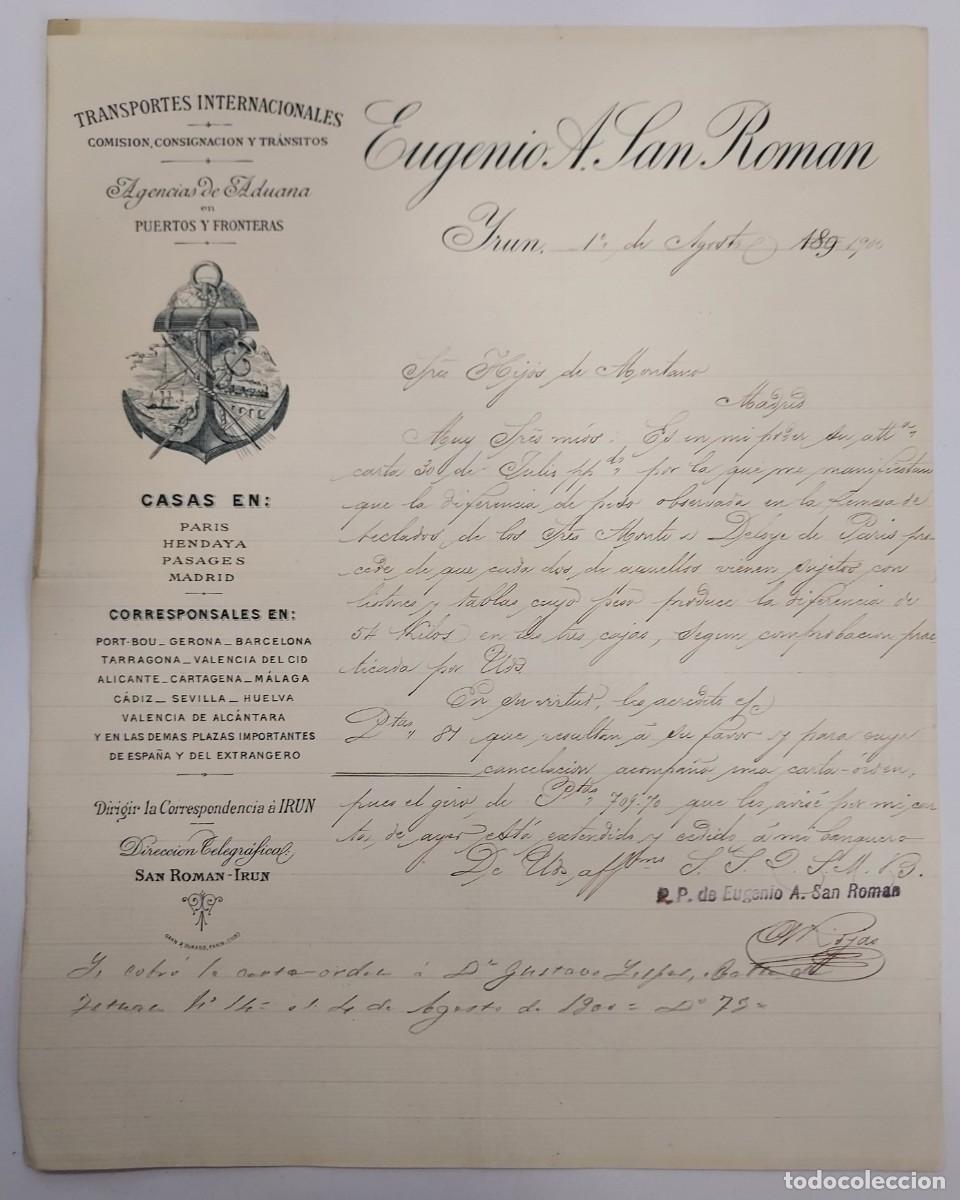 TRANSPORTES INTERNACIONALES
COMISION, CONSIGNACION Y TRÁNSITOS
Agencias de Aduana
en
PUERTOS Y FRONTERAS
Eugenio A. San Roman
Irun, 1º de Agosto 189 1900
CASAS EN:
PARIS
HENDAYA
PASAGES
MADRID
CORRESPONSALES EN:
PORT-BOU_GERONA_BARCELONA
TARRAGONA_VALENCIA DEL CID
ALICANTE_CARTAGENA_MÁLAGA
CÁDIZ_SEVILLA_HUELVA
VALENCIA DE ALCÁNTARA
Y EN LAS DEMAS PLAZAS IMPORTANTES
DE ESPAÑA Y DEL EXTRANGERO
Dirigir la Correspondencia á IRUN
Direccion Telegráfica:
SAN ROMAN-IRUN
Sres Hijos de Montano
Madrid
Muy Sres mios: Es en mi poder su attª
carta 30 de Julio ppdº por la que me manifiestan
que la diferencia de peso observada en la remesa de
teclados de los Sres Monti Delsye de Paris pro-
cede de que cada dos de aquellos vienen sujetos con
listones y tablas cuyo peso produce la diferencia de
54 Kilos en las tres cajas, segun comprobacion prac-
ticada por Uds.
En su virtud, les acredito
Ptas 81 que resultan á su favor y para cuya
cancelacion acompaño una carta-orden,
pues el giro de Ptas 709.70 que les avisé por mi car-
ta de ayer está extendido y cedido á mi banquero
De Uds affmo S. S. Q. S. M. B.
P.P. de Eugenio A. San Roman
Rojas
Se cobró la carta-orden á Dn Gustavo
Nº 14 el 4 de Agosto de 1900
todocoleccion